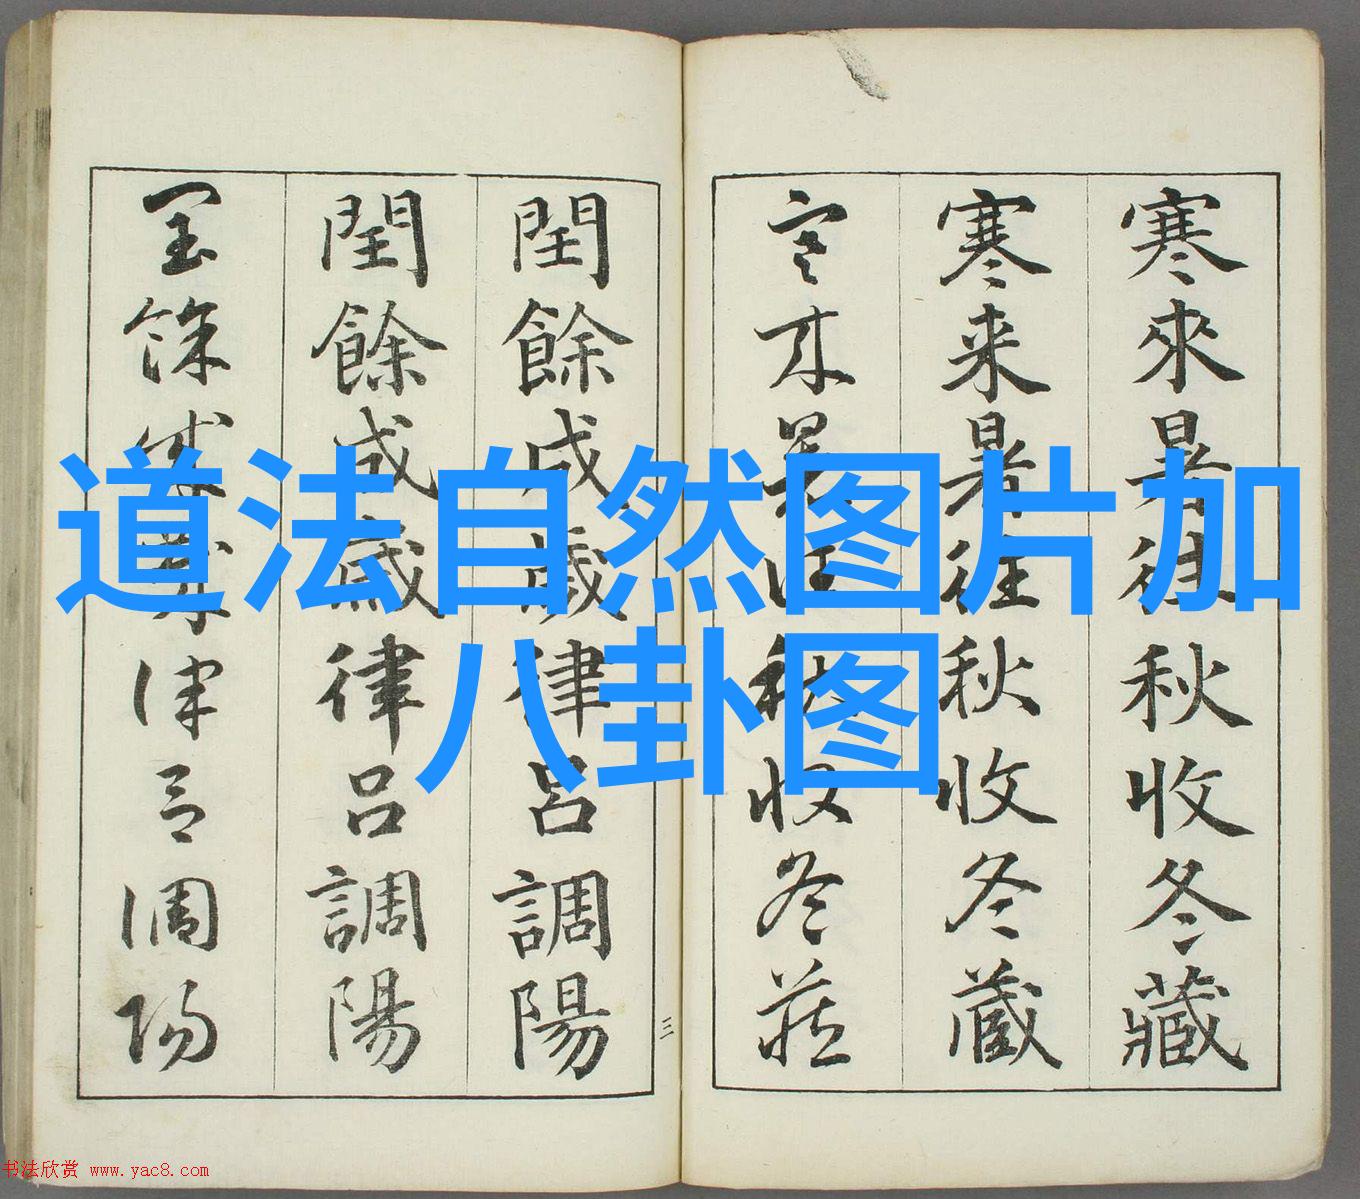 道法自然图片加
八卦图
寒來暑往秋收冬藏
寒来暑往秋收冬蔵
寒来暑往秋收冬藏
三
閏餘成歲律呂調陽
閏餘成歲律呂調陽
閏餘成歲律呂調陽
书法欣赏 www.yac8.com